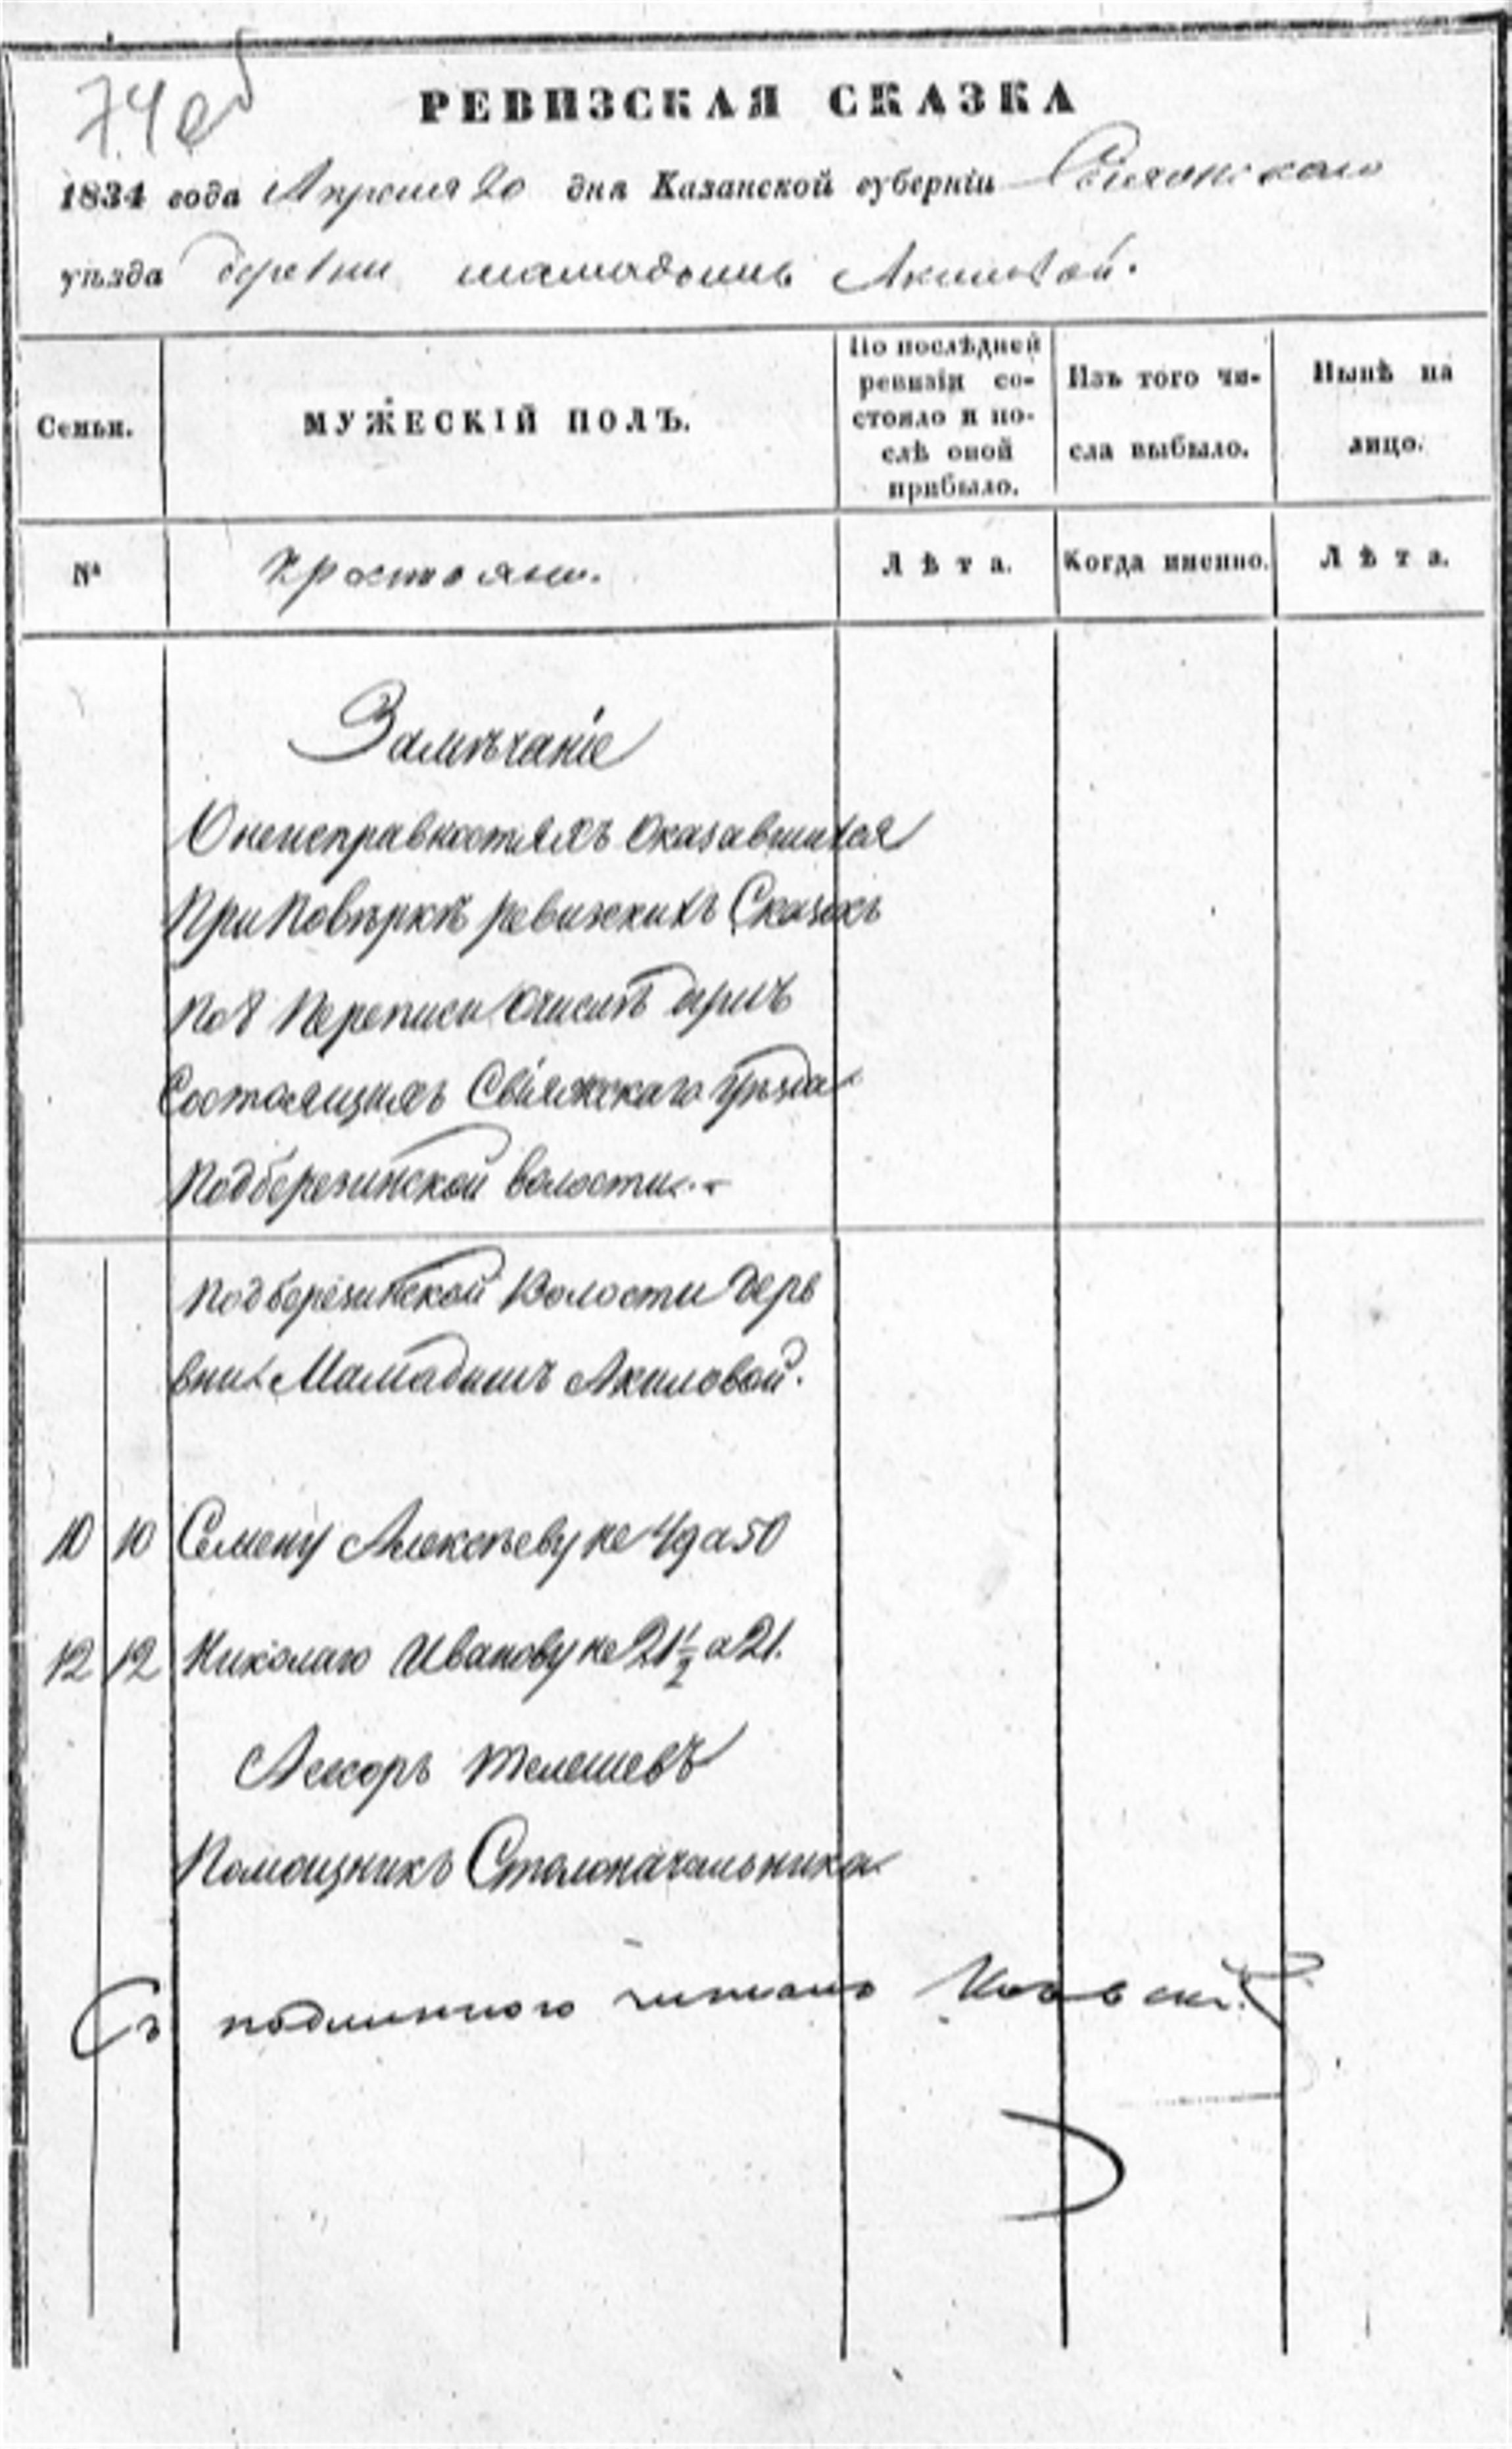 74об
РЕВИЗСКАЯ СКАЗКА
1834 года Апреля 20 дня Казанской губерніи Свіяжскаго
уѣзда деревни мамадышъ Акиловой.
Семьи.
МУЖЕСКІЙ ПОЛЪ.
По послѣдней
ревизіи со-
стояло и по-
слѣ оной
прибыло.
Изъ того чи-
сла выбыло.
Нынѣ на
лицо.
№
крестьян.
Лѣта.
Когда именно.
Лѣта.
Замѣчаніе
О неисправностяхъ Оказавшихся
При Повѣркѣ ревизскихъ Сказокъ
По 8 Переписи О числѣ
Состоящихъ Свіяжскаго Уѣзда
Подберезинской волости.
Подберезинской Волости дере
вни Мамадышъ Акиловой.
10 10 Семену Алексѣеву не 49 а 50
12 12 Николаю Иванову не 21 1/2 а 21.
Асесоръ Телешевъ
Помощникъ Столоначальника
Съ подлиннаго читалъ